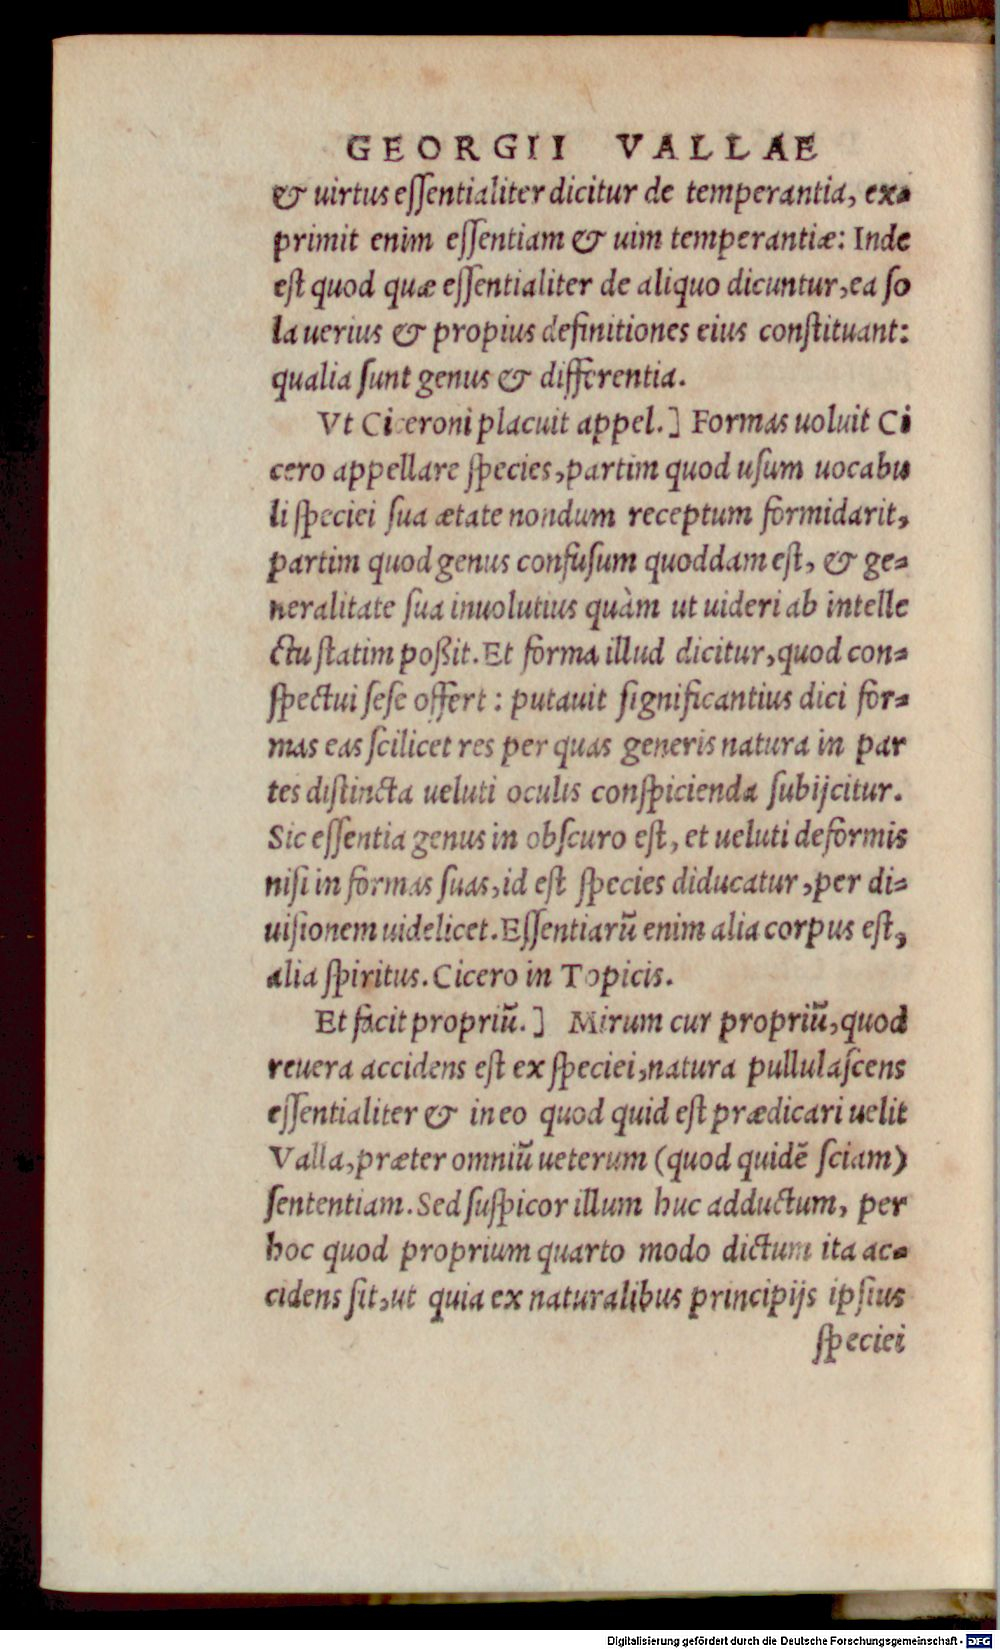 GEORGII VALLAE
& uirtus eſſentialiter dicitur de temperantia, ex-
primit enim eſſentiam & uim temperantiæ: Inde
eſt quod quæ eſſentialiter de aliquo dicuntur, ea ſo
la uerius & propius definitiones eius conſtituant:
qualia ſunt genus & differentia.
Vt Ciceroni placuit appel.] Formas uoluit Ci
cero appellare ſpecies, partim quod uſum uocabu
li ſpeciei ſua ætate nondum receptum formidarit,
partim quod genus confuſum quoddam eſt, & ge-
neralitate ſua inuolutius quàm ut uideri ab intelle
ctu ſtatim poßit. Et forma illud dicitur, quod con-
ſpectui ſeſe offert: putauit ſignificantius dici for-
mas eas ſcilicet res per quas generis natura in par
tes diſtincta ueluti oculis conſpicienda ſubijcitur.
Sic eſſentia genus in obſcuro eſt, et ueluti deformis
niſi in formas ſuas, id eſt ſpecies diducatur, per di-
uiſionem uidelicet. Eſſentiarū enim alia corpus eſt,
alia ſpiritus. Cicero in Topicis.
Et facit propriū.] Mirum cur propriū, quod
reuera accidens eſt ex ſpeciei, natura pullulaſcens
eſſentialiter & in eo quod quid eſt prædicari uelit
Valla, præter omniū ueterum (quod quidē ſciam)
ſententiam. Sed ſuſpicor illum huc adductum, per
hoc quod proprium quarto modo dictum ita ac-
cidens ſit, ut quia ex naturalibus principijs ipſius
ſpeciei
Digitalisierung gefördert durch die Deutsche Forschungsgemeinschaft - DFG